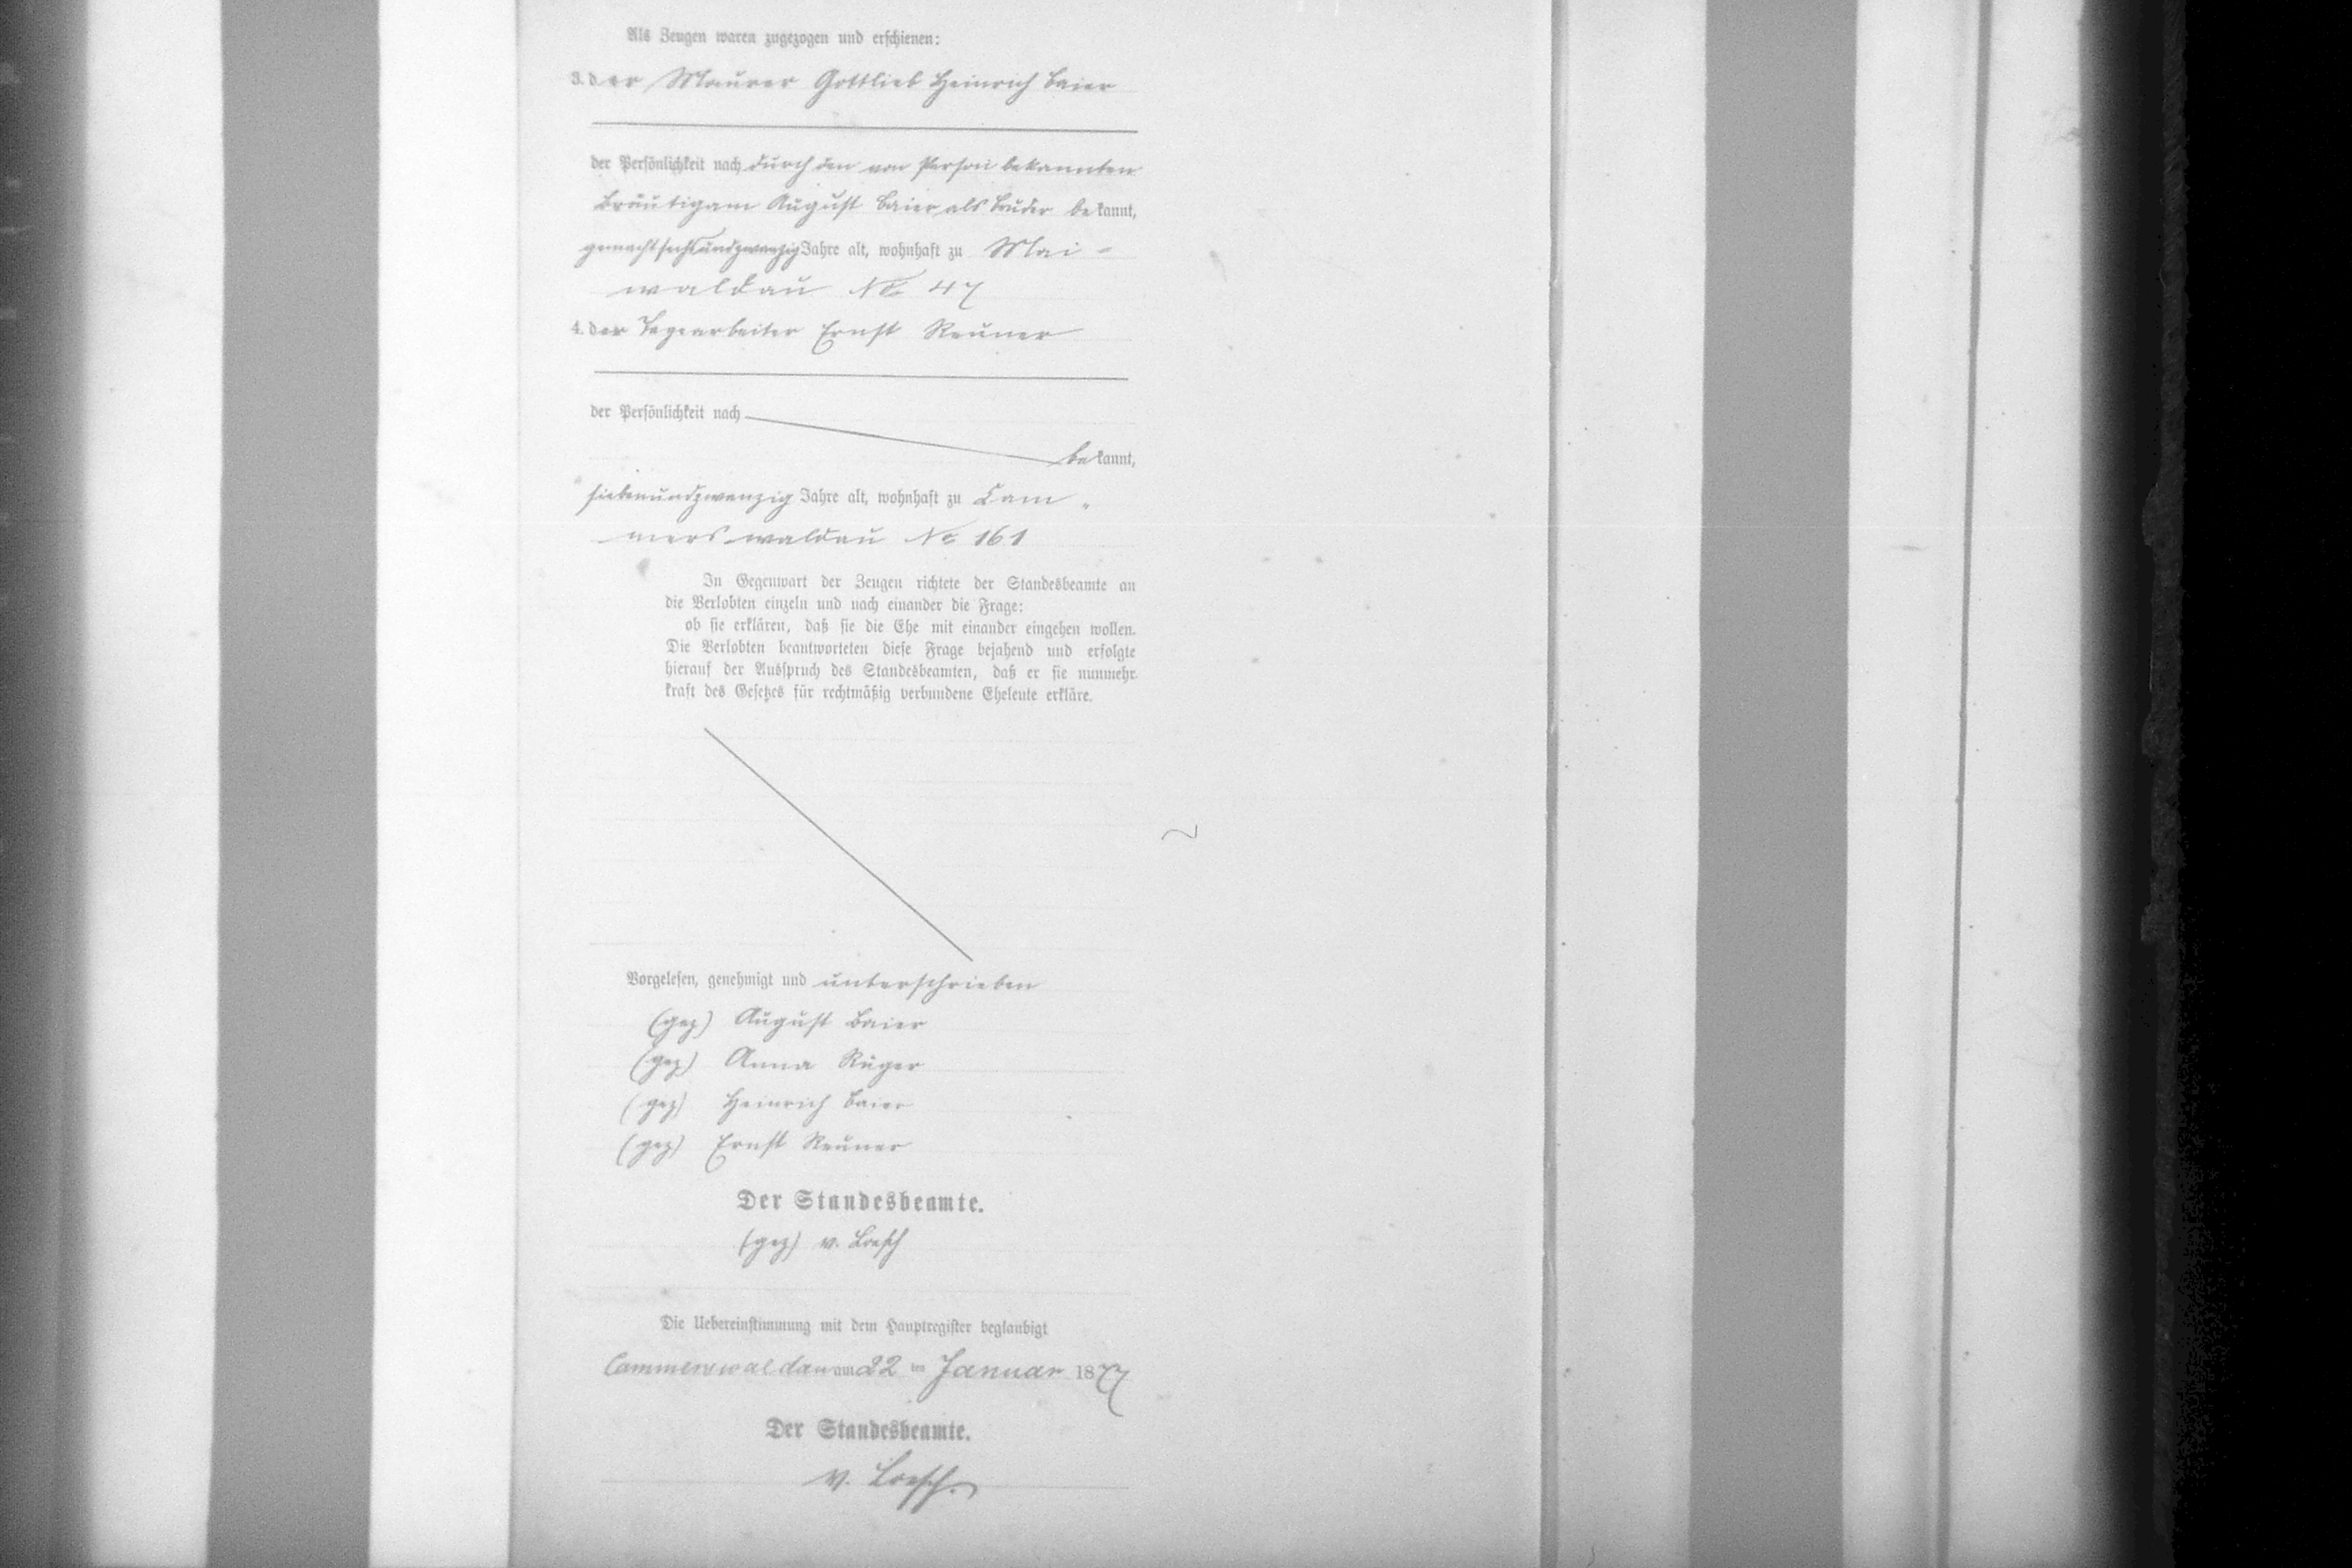 Als Zeugen waren zugezogen und erschienen:
3. der Maurer Gottlieb Heinrich Baier
der Persönlichkeit nach durch den von Person bekannten
Bräutigam August Baier als Bruder bekannt,
gemacht sechsundzwanzig Jahre alt, wohnhaft zu Mai-
waldau No 47
4. der Tagearbeiter Ernst Reuner
der Persönlichkeit nach
bekannt,
siebenundzwanzig Jahre alt, wohnhaft zu Cam-
merswaldau No 161
In Gegenwart der Zeugen richtete der Standesbeamte an
die Verlobten einzeln und nach einander die Frage:
ob sie erklären, daß sie die Ehe mit einander eingehen wollen.
Die Verlobten beantworteten diese Frage bejahend und erfolgte
hierauf der Ausspruch des Standesbeamten, daß er sie nunmehr
kraft des Gesetzes für rechtmäßig verbundene Eheleute erkläre.
Vorgelesen, genehmigt und unterschrieben
(gez) August Baier
(gez) Anna Rüger
(gez) Heinrich Baier
(gez) Ernst Reuner
Der Standesbeamte.
(gez) v. Loesch
Die Uebereinstimmung mit dem Hauptregister beglaubigt
Cammerswaldau am 22 ten Januar 1877
Der Standesbeamte.
v. Loesch.